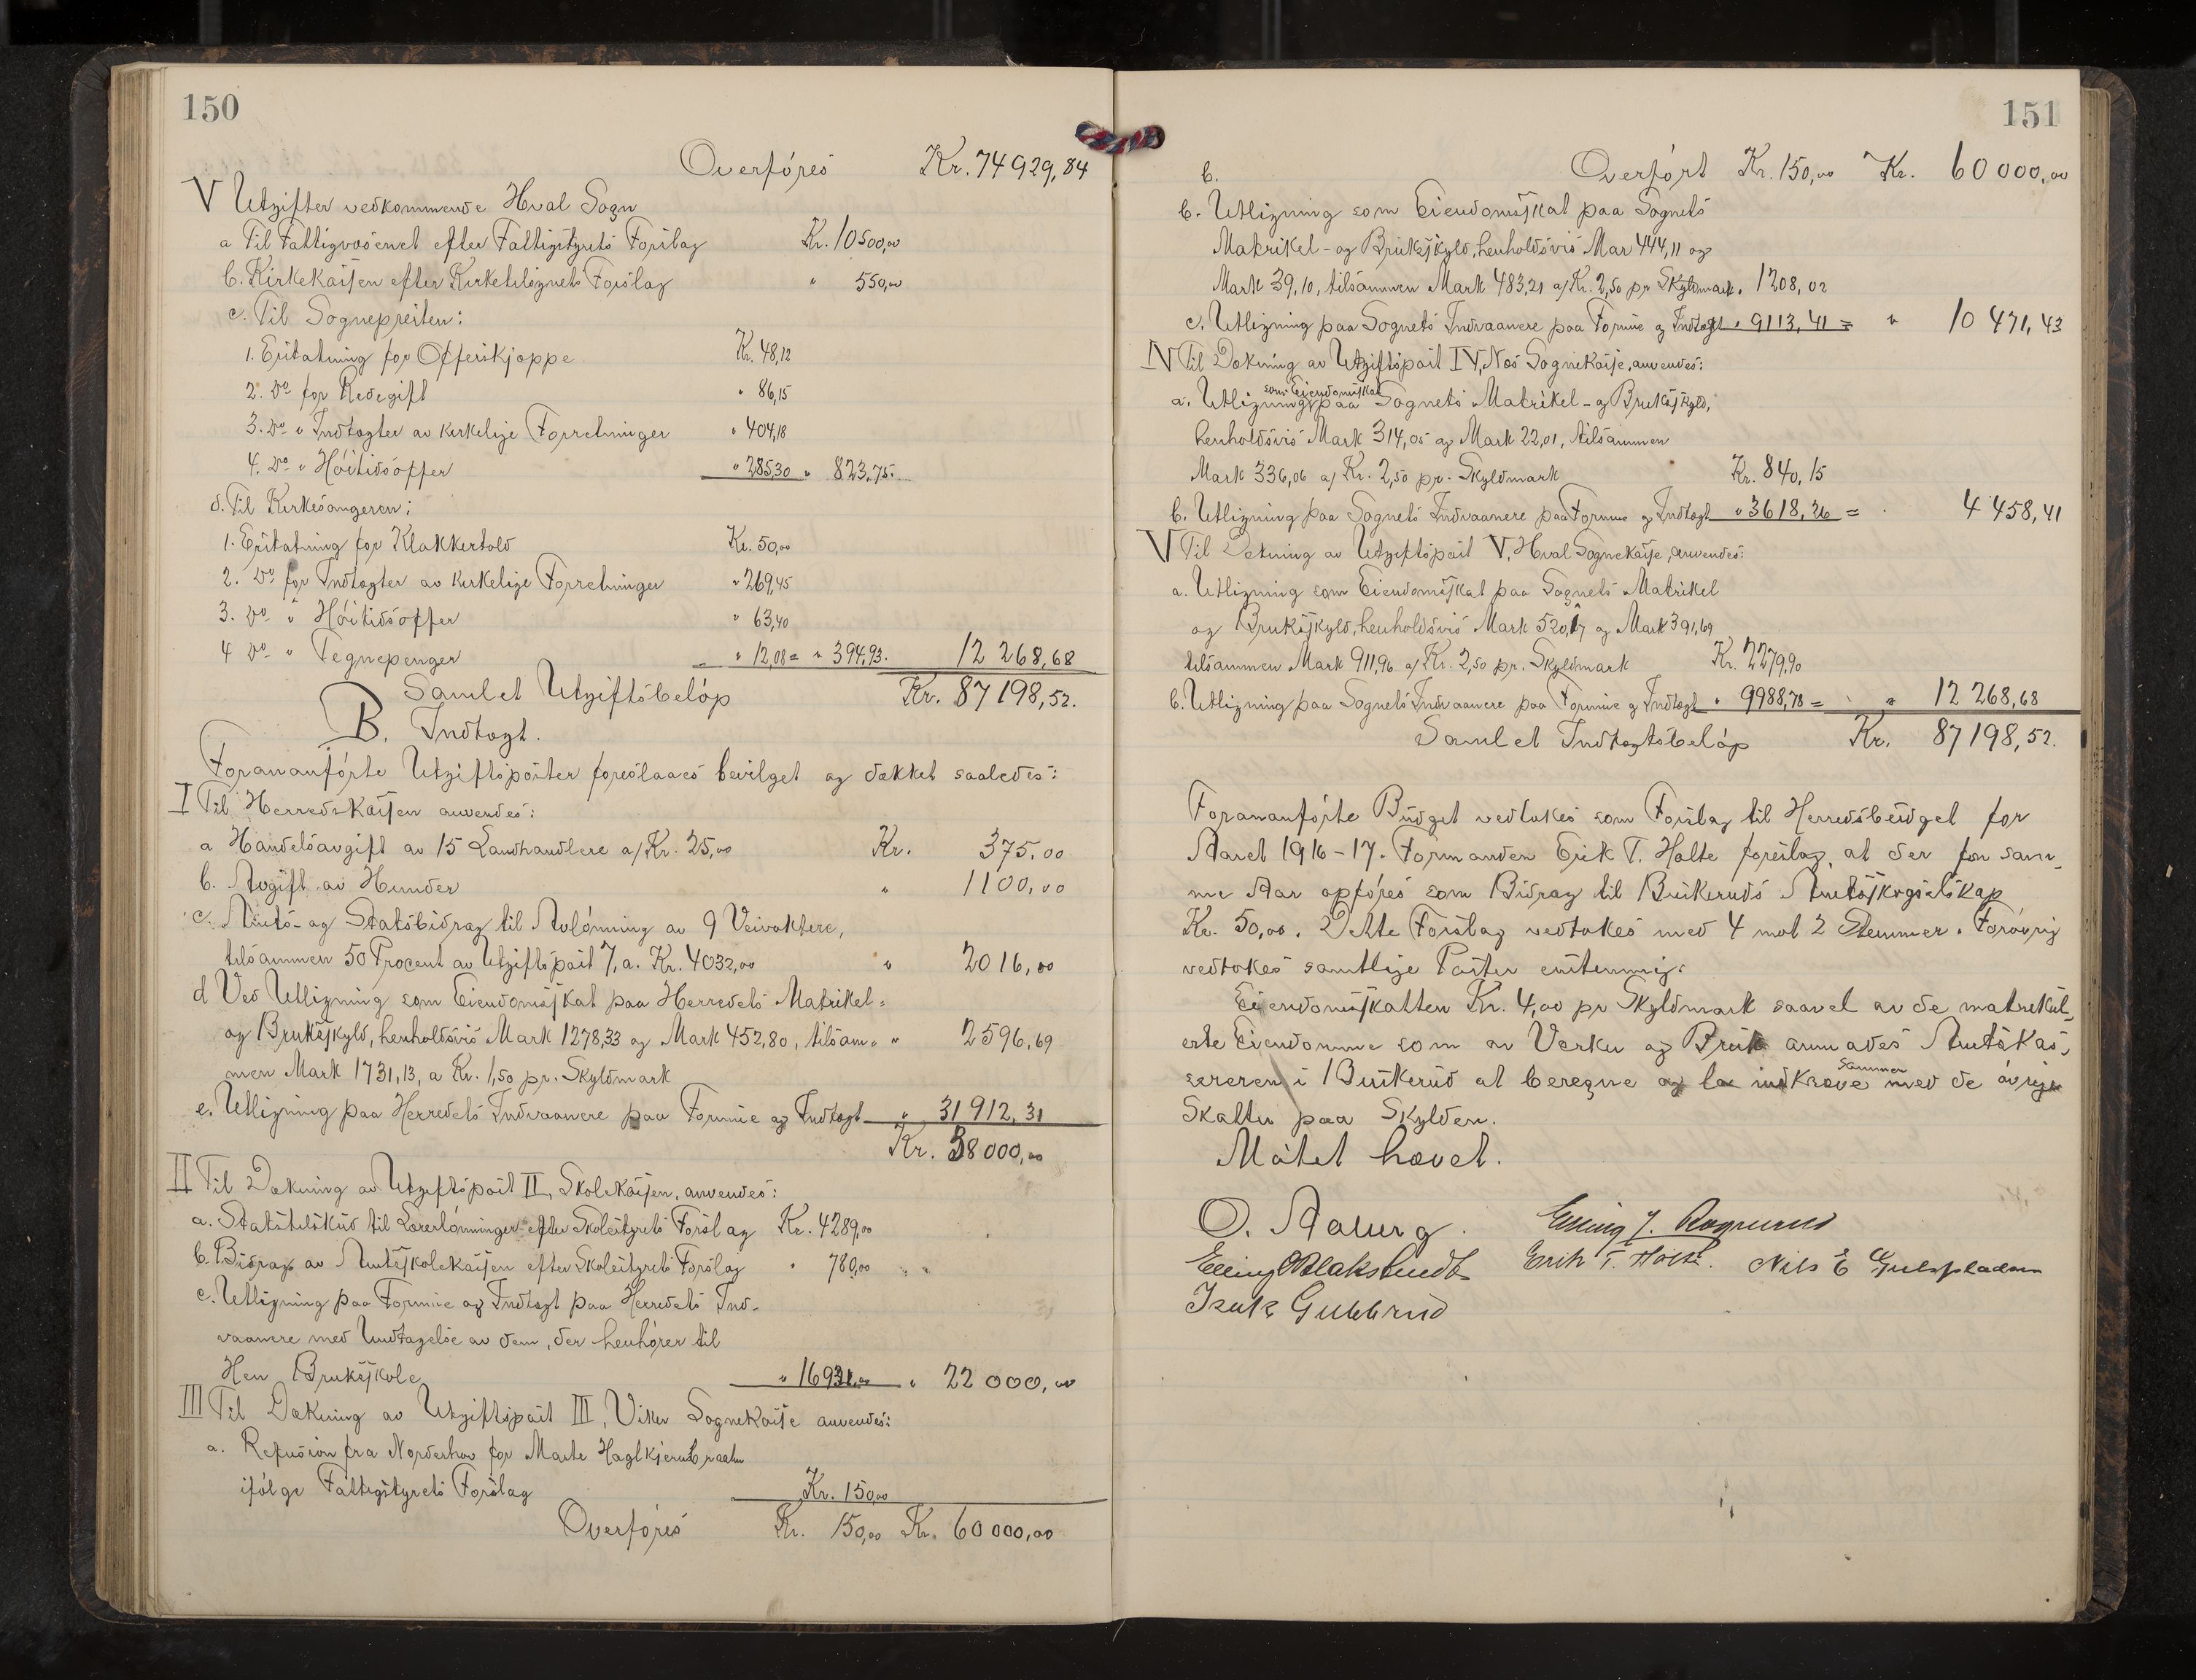 150
Overføres Kr. 74929,84
V Utgifter vedkommende Hval Sogn
a Til Fattigvæsenet efter Fattigstyrets Forslag Kr. 10500,00
b. Kirkekassen efter Kirketilsynets Forslag " 550,00
c. Til Sognepresten:
1. Erstatning for Offerskjæppe Kr. 48,12
2. Do for Redegift " 86,15
3. Do " Indtægter av kirkelige Forretninger " 404,18
4. Do " Høitidsoffer " 285,30 " 823,75.
d. Til Kirkesangeren:
1. Erstatning for Klokkertold Kr. 50,00
2. Do for Indtægter av kirkelige Forretninger " 269,45
3. Do " Høitidsoffer " 63,40
4 Do " Tegnepenger " 12,08 = " 394,93. 12 268,68
Samlet Utgiftsbeløp Kr. 87198,52.
B. Indtægt.
Forananførte Utgiftsposter foreslaaes bevilget og dækket saaledes:
I Til Herredskassen anvendes:
a Handelsavgift av 15 Landhandlere a/ Kr. 25,00 Kr. 375,00
b. Avgift av Hunder " 1100,00
c. Amts- og Statsbidrag til Avlønning av 9 Veivoktere,
tilsammen 50 Procent av Utgiftspost 7, a. Kr. 4032,00 " 2016,00
d Ved Utligning som Eiendomsskat paa Herredets Matrikel-
og Bruksskyld, henholdsvis Mark 1278,33 og Mark 452,80, tilsam- " 2596,69
men Mark 1731,13, a Kr. 1,50 pr. Skyldmark
e. Utligning paa Herredets Indvaanere paa Formue og Indtægt " 31912,31
Kr. 38000,00
II Til Dækning av Utgiftspost II, Skolekassen, anvendes:
a. Statstilskud til Lærerlønninger efter Skolestyrets Forslag Kr. 4289,00
b. Bidrag av Amtsskolekassen efter Skolestyrets Forslag " 780,00 " "
c. Utligning paa Formue og Indtægt paa Herredets Ind-
vaanere med Undtagelse av dem, der henhører til
Hen Bruksskole " 16931,00 " 22000,00
III Til Dækning av Utgiftspost III, Viker Sognekasse anvendes:
a. Refusion fra Norderhov for Marte Haglkjernbraaten
ifølge Fattigstyrets Forslag Kr. 150,00
Overføres Kr. 150,00 Kr. 60000,00
151
b. Overført Kr. 150,00 Kr. 60000,00
b. Utligning som Eiendomsskat paa Sognets
Matrikel- og Bruksskyld, henholdsvis Mar 444,11 og
Mark 39,10, tilsammen Mark 483,21 a/ Kr. 2,50 pr Skyldmark. 1208,02
c. Utligning paa Sognets Indvaanere paa Formue og Indtægt " 9113,41 = " 10 471,43
IV Til Dækning av Utgiftspost IV, Nes Sognekasse, anvendes:
som Eiendomsskat
a. Utligning paa Sognets Matrikel- og Bruksskyld,
henholdsvis Mark 314,05 og Mark 22,01, tilsammen
Mark 336,06 a/ Kr. 2,50 pr. Skyldmark Kr. 840,15
b. Utligning paa Sognets Indvaanere paa Formue og Indtægt " 3618,26 = 4 458,41
V Til Dækning av Utgiftspost V, Hval Sognekasse, anvendes:
a. Utligning som Eiendomsskat paa Sognets Matrikel
og Bruksskyld, henholdsvis Mark 520,27 og Mark 391,69
tilsammen Mark 911,96 a/ Kr. 2,50 pr. Skyldmark Kr. 2279,90
b. Utligning paa Sognets Indvaanere paa Formue og Indtægt " 9988,78 = " 12 268,68
Samlet Indtægtsbeløp Kr. 87198,52.
Forananførte Budget vedtokes som Forslag til Herredsbudget for
Aaret 1916-17. Formanden Erik T. Holte foreslog, at der for sam-
me Aar opføres som Bidrag til Buskeruds Amtsskogselskap
Kr. 50,00. Dette Forslag vedtokes med 4 mot 2 Stemmer. Forøvrig
vedtokes samtlige Poster enstemmig.
Eiendomsskatten Kr. 4,00 pr Skyldmark saavel av de matrikul-
erte Eiendomme som av Verker og Bruk anmodes Amtskas-
sereren i Buskerud at beregne og la indkræve sammen med de øvrige
Skatter paa Skylden.
Møtet hævet.
O. Aaberg. Elling J. Rognerud
Elling O Blakstvedt Erik T. Holte. Nils E Gulspladsen
Isak Gubbrud